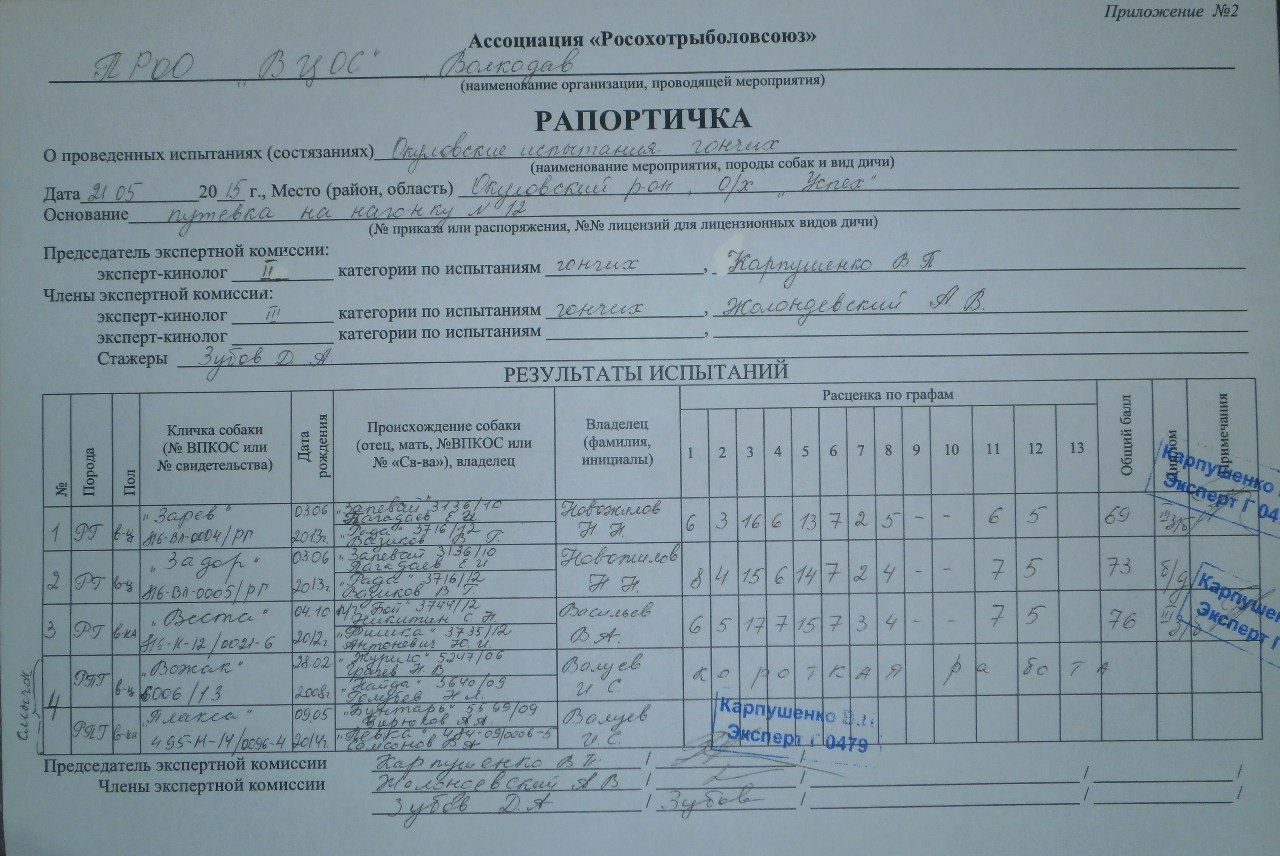 Приложение №2
Ассоциация «Росохотрыболовсоюз»
ПРОО "ВЦОС" "Волкодав
(наименование организации, проводящей мероприятия)
РАПОРТИЧКА
О проведенных испытаниях (состязаниях) Окуловские испытания гончих
(наименование мероприятия, породы собак и вид дичи)
Дата 21 05 2015 г., Место (район, область) Окуловский рон, О/Х "Успех"
Основание путевка на нагонку №12
(№ приказа или распоряжения, №№ лицензий для лицензионных видов дичи)
Председатель экспертной комиссии:
эксперт-кинолог II категории по испытаниям гончих, Карпушенко В П
Члены экспертной комиссии:
эксперт-кинолог III категории по испытаниям гончих, Жолондевский А В.
эксперт-кинолог категории по испытаниям ,
Стажеры Зубов Д. А.
РЕЗУЛЬТАТЫ ИСПЫТАНИЙ
№ Порода Пол Кличка собаки (№ ВПКОС или № свидетельства) Дата рождения Происхождение собаки (отец, мать, №ВПКОС или № «Св-ва»), владелец Владелец (фамилия, инициалы) Расценка по графам Общий балл Диплом Примечания
1 2 3 4 5 6 7 8 9 10 11 12 13
1 РГ в-ц "Зарев" 03.06 "Запевай" 3136/10 Новожилов 6 3 16 6 13 7 2 5 - - 6 5 69
Н16-ВЛ-0004/РГ 2013г. "Рада" 3716/12 Н Н.
2 РГ в-ц "Задор" 03.06 "Запевай" 3136/10 Новожилов 8 4 15 6 14 7 2 4 - - 7 5 73 б/д
Н16-ВЛ-0005/РГ 2013г. "Рада" 3716/12 Н Н.
3 РГ в-ка "Веста" 04.10 "Бой" 3744/12 Никитин С Н Васильев 6 5 17 7 15 7 3 4 - - 7 5 76
2012г. 3735/12 Антонович Ю И В А.
Смычок
4 РПГ в-ц "Вожак" 28.02 5247/06 Валуев короткая работа
6006/13 2008г. "Найда" 5640/09 И С.
РПГ в-ка "Плакса" 09.05 "Бунтарь" 5599/09 Бирюков А А. Валуев
495-Н-14/0096-4 2014г. "Певка" 484-09/0006-5 Самсонов И С.
Карпушенко
Эксперт Г 04
Карпушен
Эксперт Г
Карпушенко В.П.
Эксперт Г 0479
Председатель экспертной комиссии Карпушенко В П. / /
Члены экспертной комиссии Жолондевский А В / / / /
Зубов Д.А / Зубов / / /